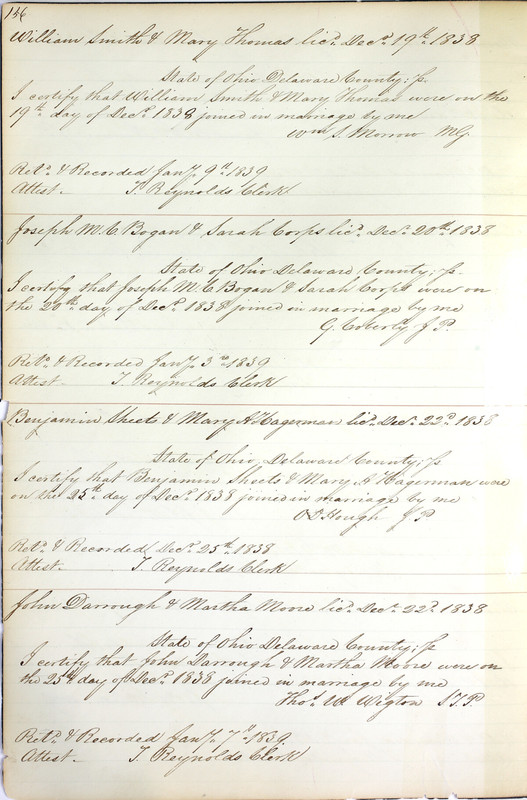 156
William Smith & Mary Thomas lic.d Dec.r 19th 1838
State of Ohio Delaware County; ss.
I certify that William Smith & Mary Thomas were on the
19th day of Dec.r 1838 joined in marriage by me
Wm S. Morrow MG
Ret.d & Recorded Jan.y 9th 1839
Attest. T. Reynolds Clerk
Joseph M. C. Bogan & Sarah Corps lic.d Dec.r 20th 1838
State of Ohio Delaware County; ss.
I certify that Joseph M. C. Bogan & Sarah Corps were on
the 20th day of Dec.r 1838 joined in marriage by me
G. J. P.
Ret.d & Recorded Jan.y 3rd 1839
Attest. T. Reynolds Clerk
Benjamin Sheets & Mary A Hagerman lic.d Dec.r 22d 1838
State of Ohio, Delaware County; ss
I certify that Benjamin Sheets & Mary A Hagerman were
on the 25th day of Dec.r 1838 joined in marriage by me
O D Hough J P
Ret.d & Recorded Dec.r 25th 1838
Attest. T. Reynolds Clerk
John Darrough & Martha Moore lic.d Dec.r 22d 1838
State of Ohio Delaware County; ss
I certify that John Darrough & Martha Moore were on
the 25th day of Dec.r 1838 joined in marriage by me
Tho.s W. Wigton J.P.
Ret.d & Recorded Jan.y 7th 1839.
Attest. T. Reynolds Clerk